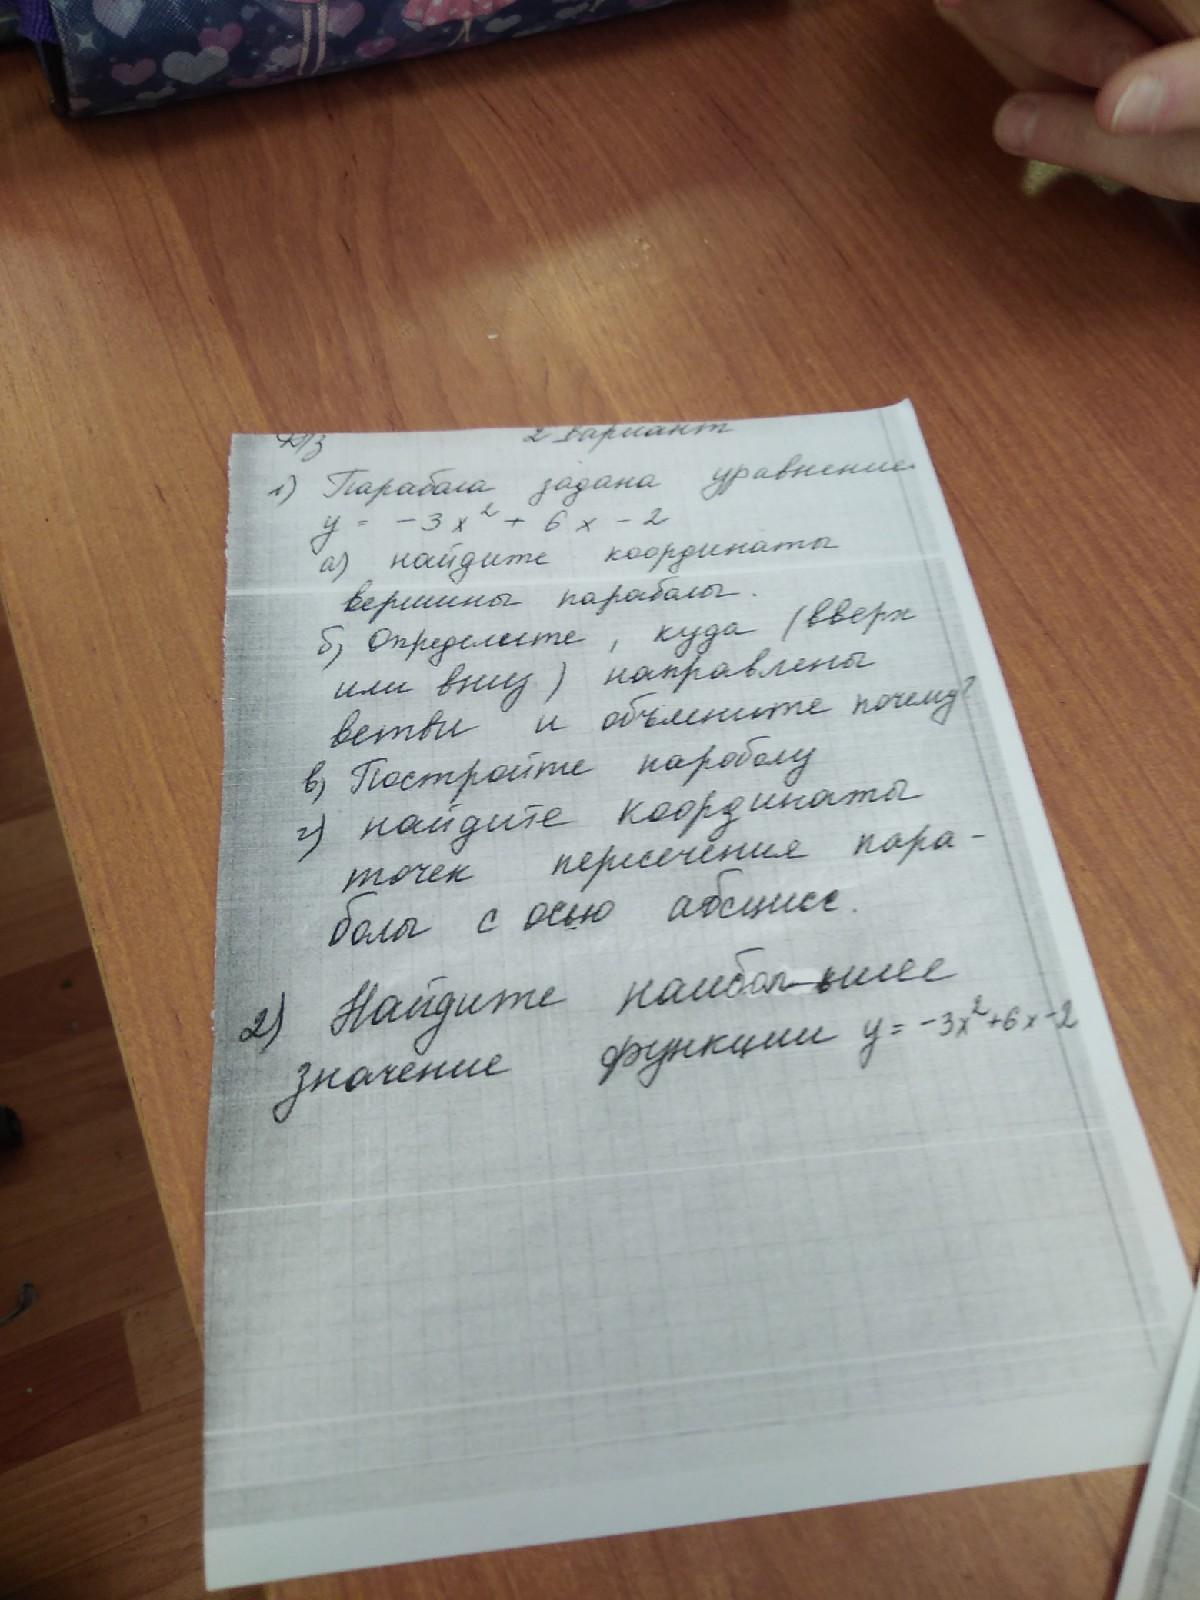 Д/з 2 вариант
1) Парабола задана уравнение
y = -3x² + 6x - 2
а) найдите координаты
вершины параболы.
б) Определите, куда (вверх
или вниз) направлены
ветви и объясните почему?
в) Постройте параболу
г) найдите координаты
точек пересечения пара-
болы с осью абсцисс.
2) Найдите наибольшее
значение функции y = -3x²+6x-2